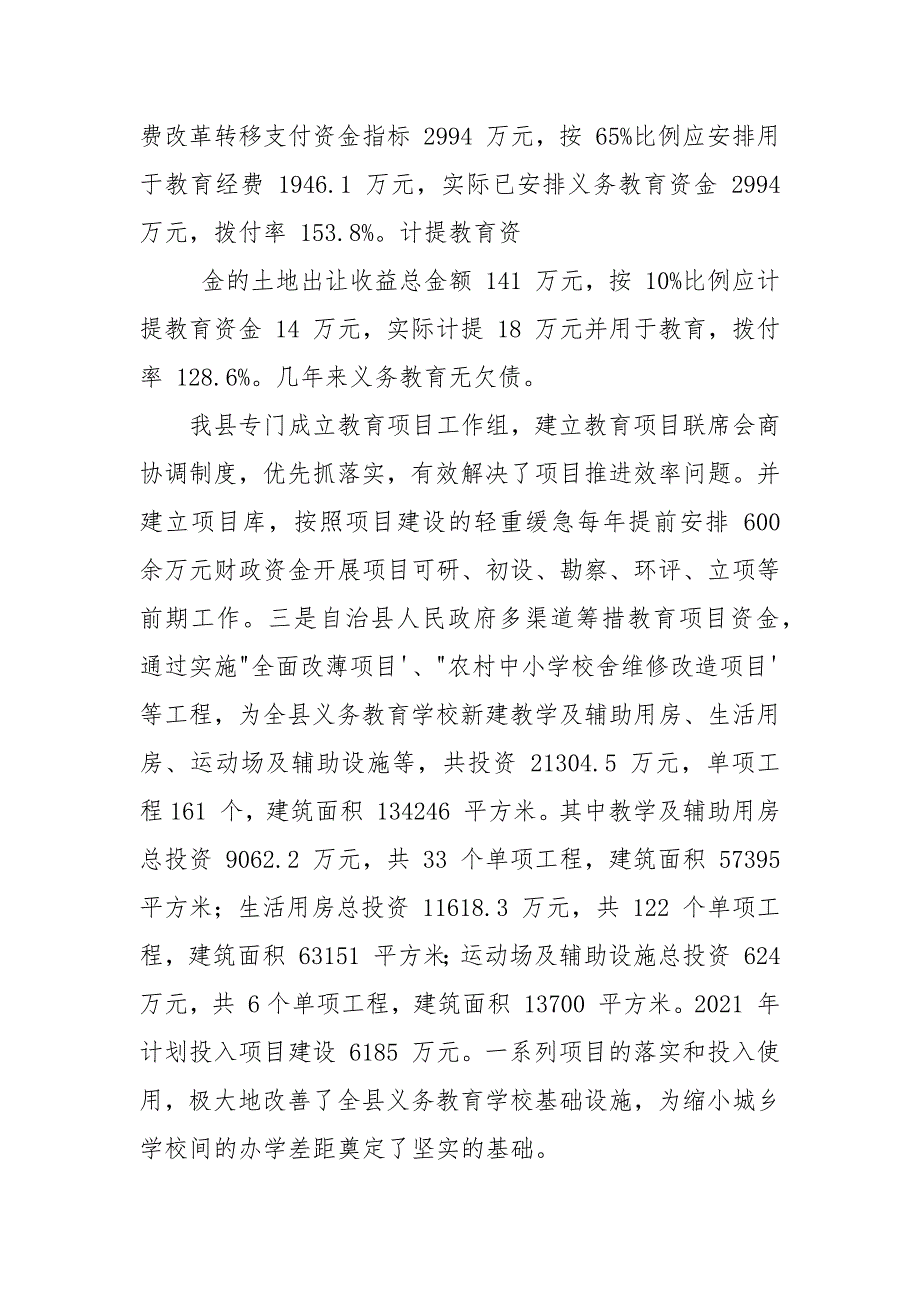 费改革转移支付资金指标 2994 万元，按 65%比例应安排用
于教育经费 1946.1 万元，实际已安排义务教育资金 2994
万元，拨付率 153.8%。计提教育资
金的土地出让收益总金额 141 万元，按 10%比例应计
提教育资金 14 万元，实际计提 18 万元并用于教育，拨付
率 128.6%。几年来义务教育无欠债。
我县专门成立教育项目工作组，建立教育项目联席会商
协调制度，优先抓落实，有效解决了项目推进效率问题。并
建立项目库，按照项目建设的轻重缓急每年提前安排 600
余万元财政资金开展项目可研、初设、勘察、环评、立项等
前期工作。三是自治县人民政府多渠道筹措教育项目资金，
通过实施"全面改薄项目'、"农村中小学校舍维修改造项目'
等工程，为全县义务教育学校新建教学及辅助用房、生活用
房、运动场及辅助设施等，共投资 21304.5 万元，单项工
程161 个，建筑面积 134246 平方米。其中教学及辅助用房
总投资 9062.2 万元，共 33 个单项工程，建筑面积 57395
平方米；生活用房总投资 11618.3 万元，共 122 个单项工
程，建筑面积 63151 平方米；运动场及辅助设施总投资 624
万元，共 6个单项工程，建筑面积 13700 平方米。2021 年
计划投入项目建设 6185 万元。一系列项目的落实和投入使
用，极大地改善了全县义务教育学校基础设施，为缩小城乡
学校间的办学差距奠定了坚实的基础。